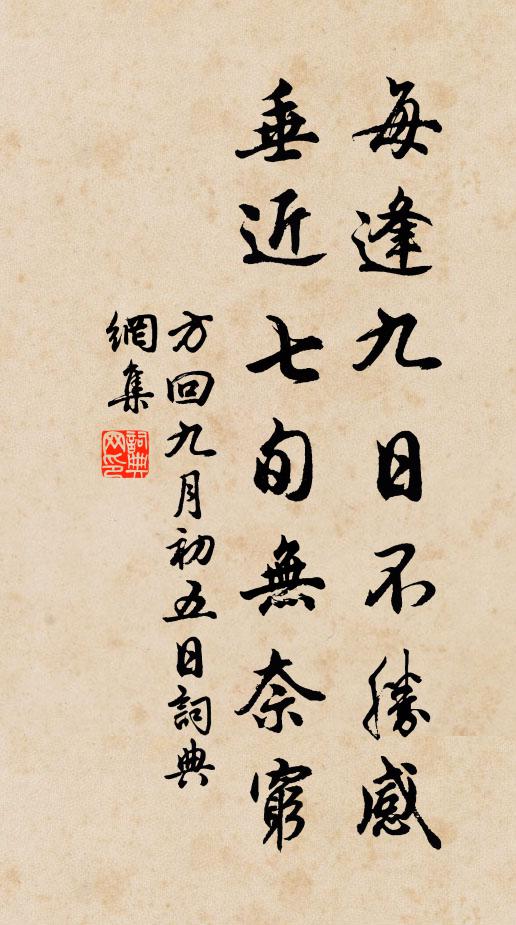 每逢九日不勝感
垂近七旬無奈窮
方回九月初五日詞典
網集
詞典網印